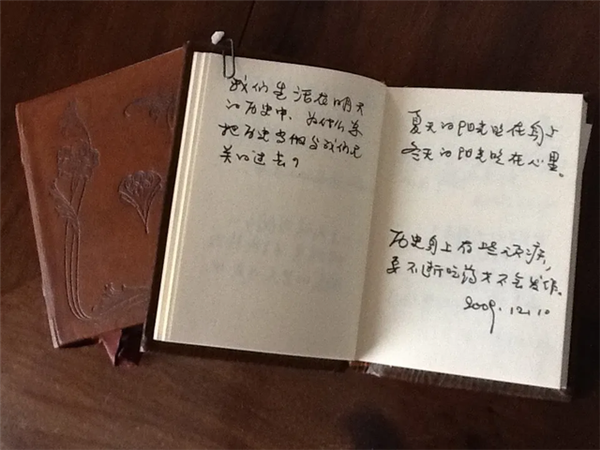 我们生活在明天
的历史中，为什么要
把历史当做与我们无
关的过去？
夏天的阳光晒在身上
冬天的阳光晒在心里。
历史身上有些顽病，
要不断吃药才不会发作。
2009.12.10